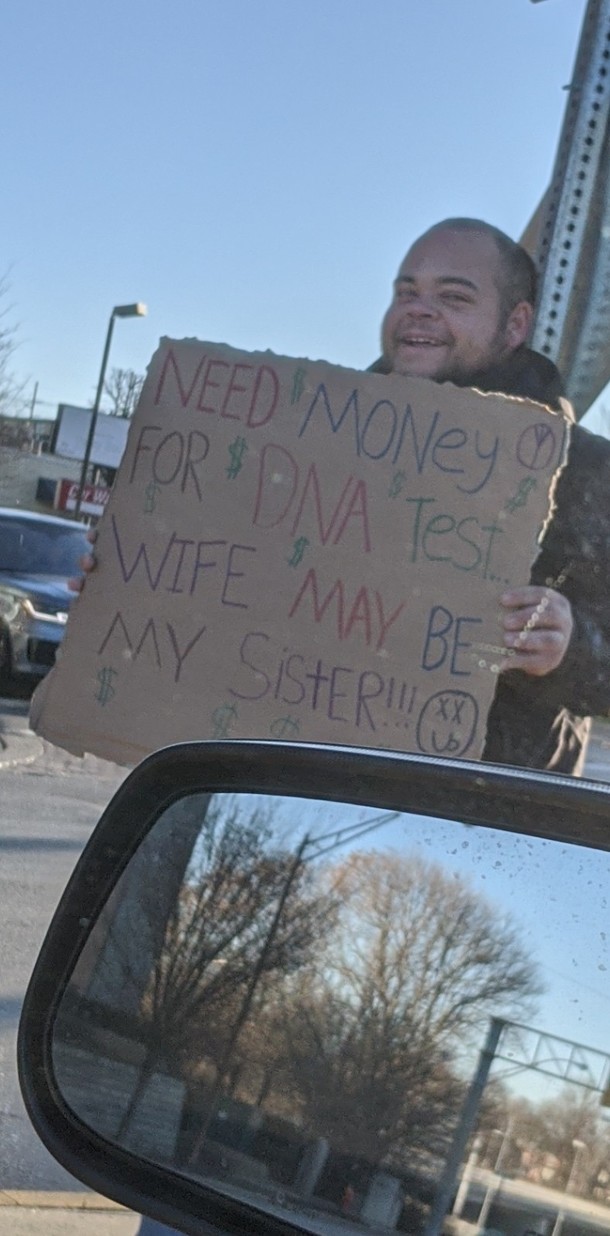 NEED $ MONey
FOR $ DNA $ TesT.. $
$ WIFE $ MAY BE
MY SisTER!!! XX
$ $ $